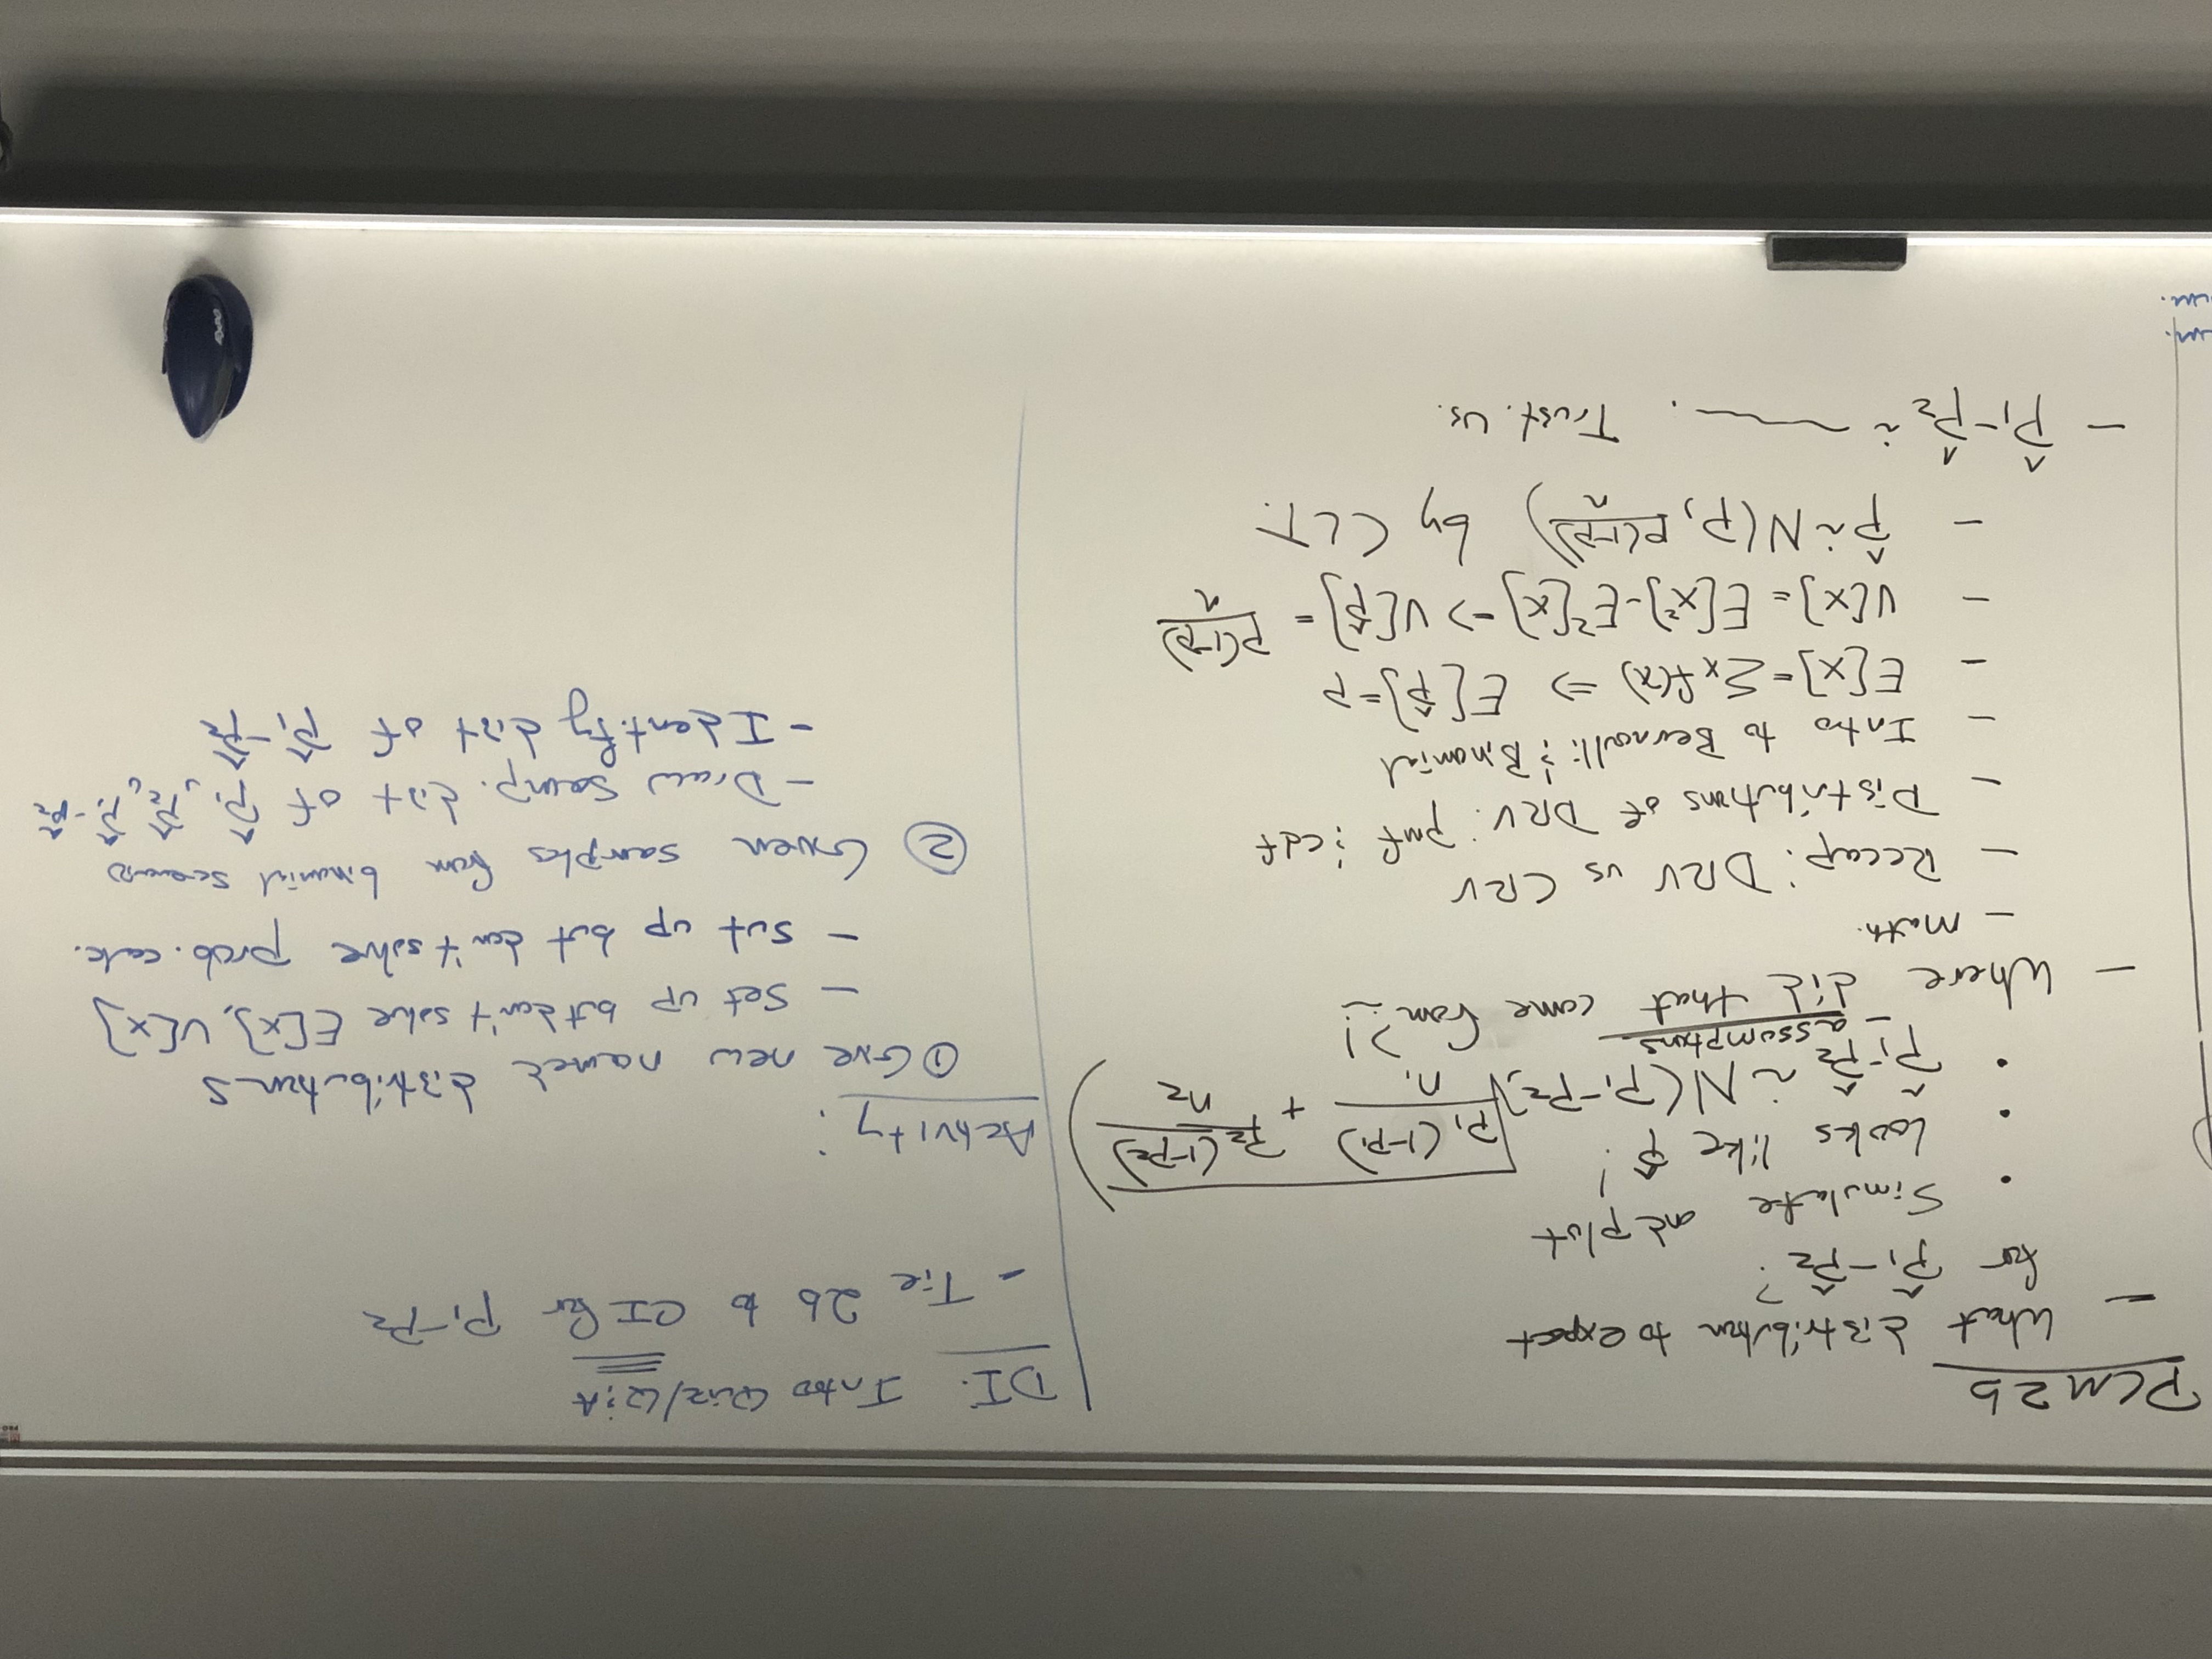 PCM2b
- What distribution to expect
for p̂₁-p̂₂?
• Simulate and plot
• Looks like p̂!
• p̂₁-p̂₂ ∻ N(p₁-p₂, √(p₁(1-p₁)/n₁ + p₂(1-p₂)/n₂))
- assumptions.
- Where did that come from?!
- Math.
- Recap: DRV vs CRV
- Distributions of DRV: pmf & cdf
- Intro to Bernoulli & Binomial
- E[X]=Σxf(x) => E[p̂]=p
- V[X]=E[X²]-E²[X] -> V[p̂]=p(1-p)/n
- p̂ ∻ N(p, p(1-p)/n) by CLT.
- p̂₁-p̂₂ ∻ ~~~. Trust. Us.
DI. Intro Quiz/Q&A
- Tie 2b to CI for p₁-p₂
Activity:
① Give new named distributions
- Set up but don't solve E[X], V[X]
- Set up but don't solve prob. calc.
② Given samples from binomial scenario
- Draw samp. dist of p̂₁, p̂₂, p̂₁-p̂₂
- Identify dist of p̂₁-p̂₂